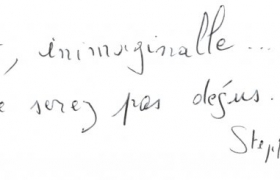 , inimaginalle...
serez pas deçus.
Steph